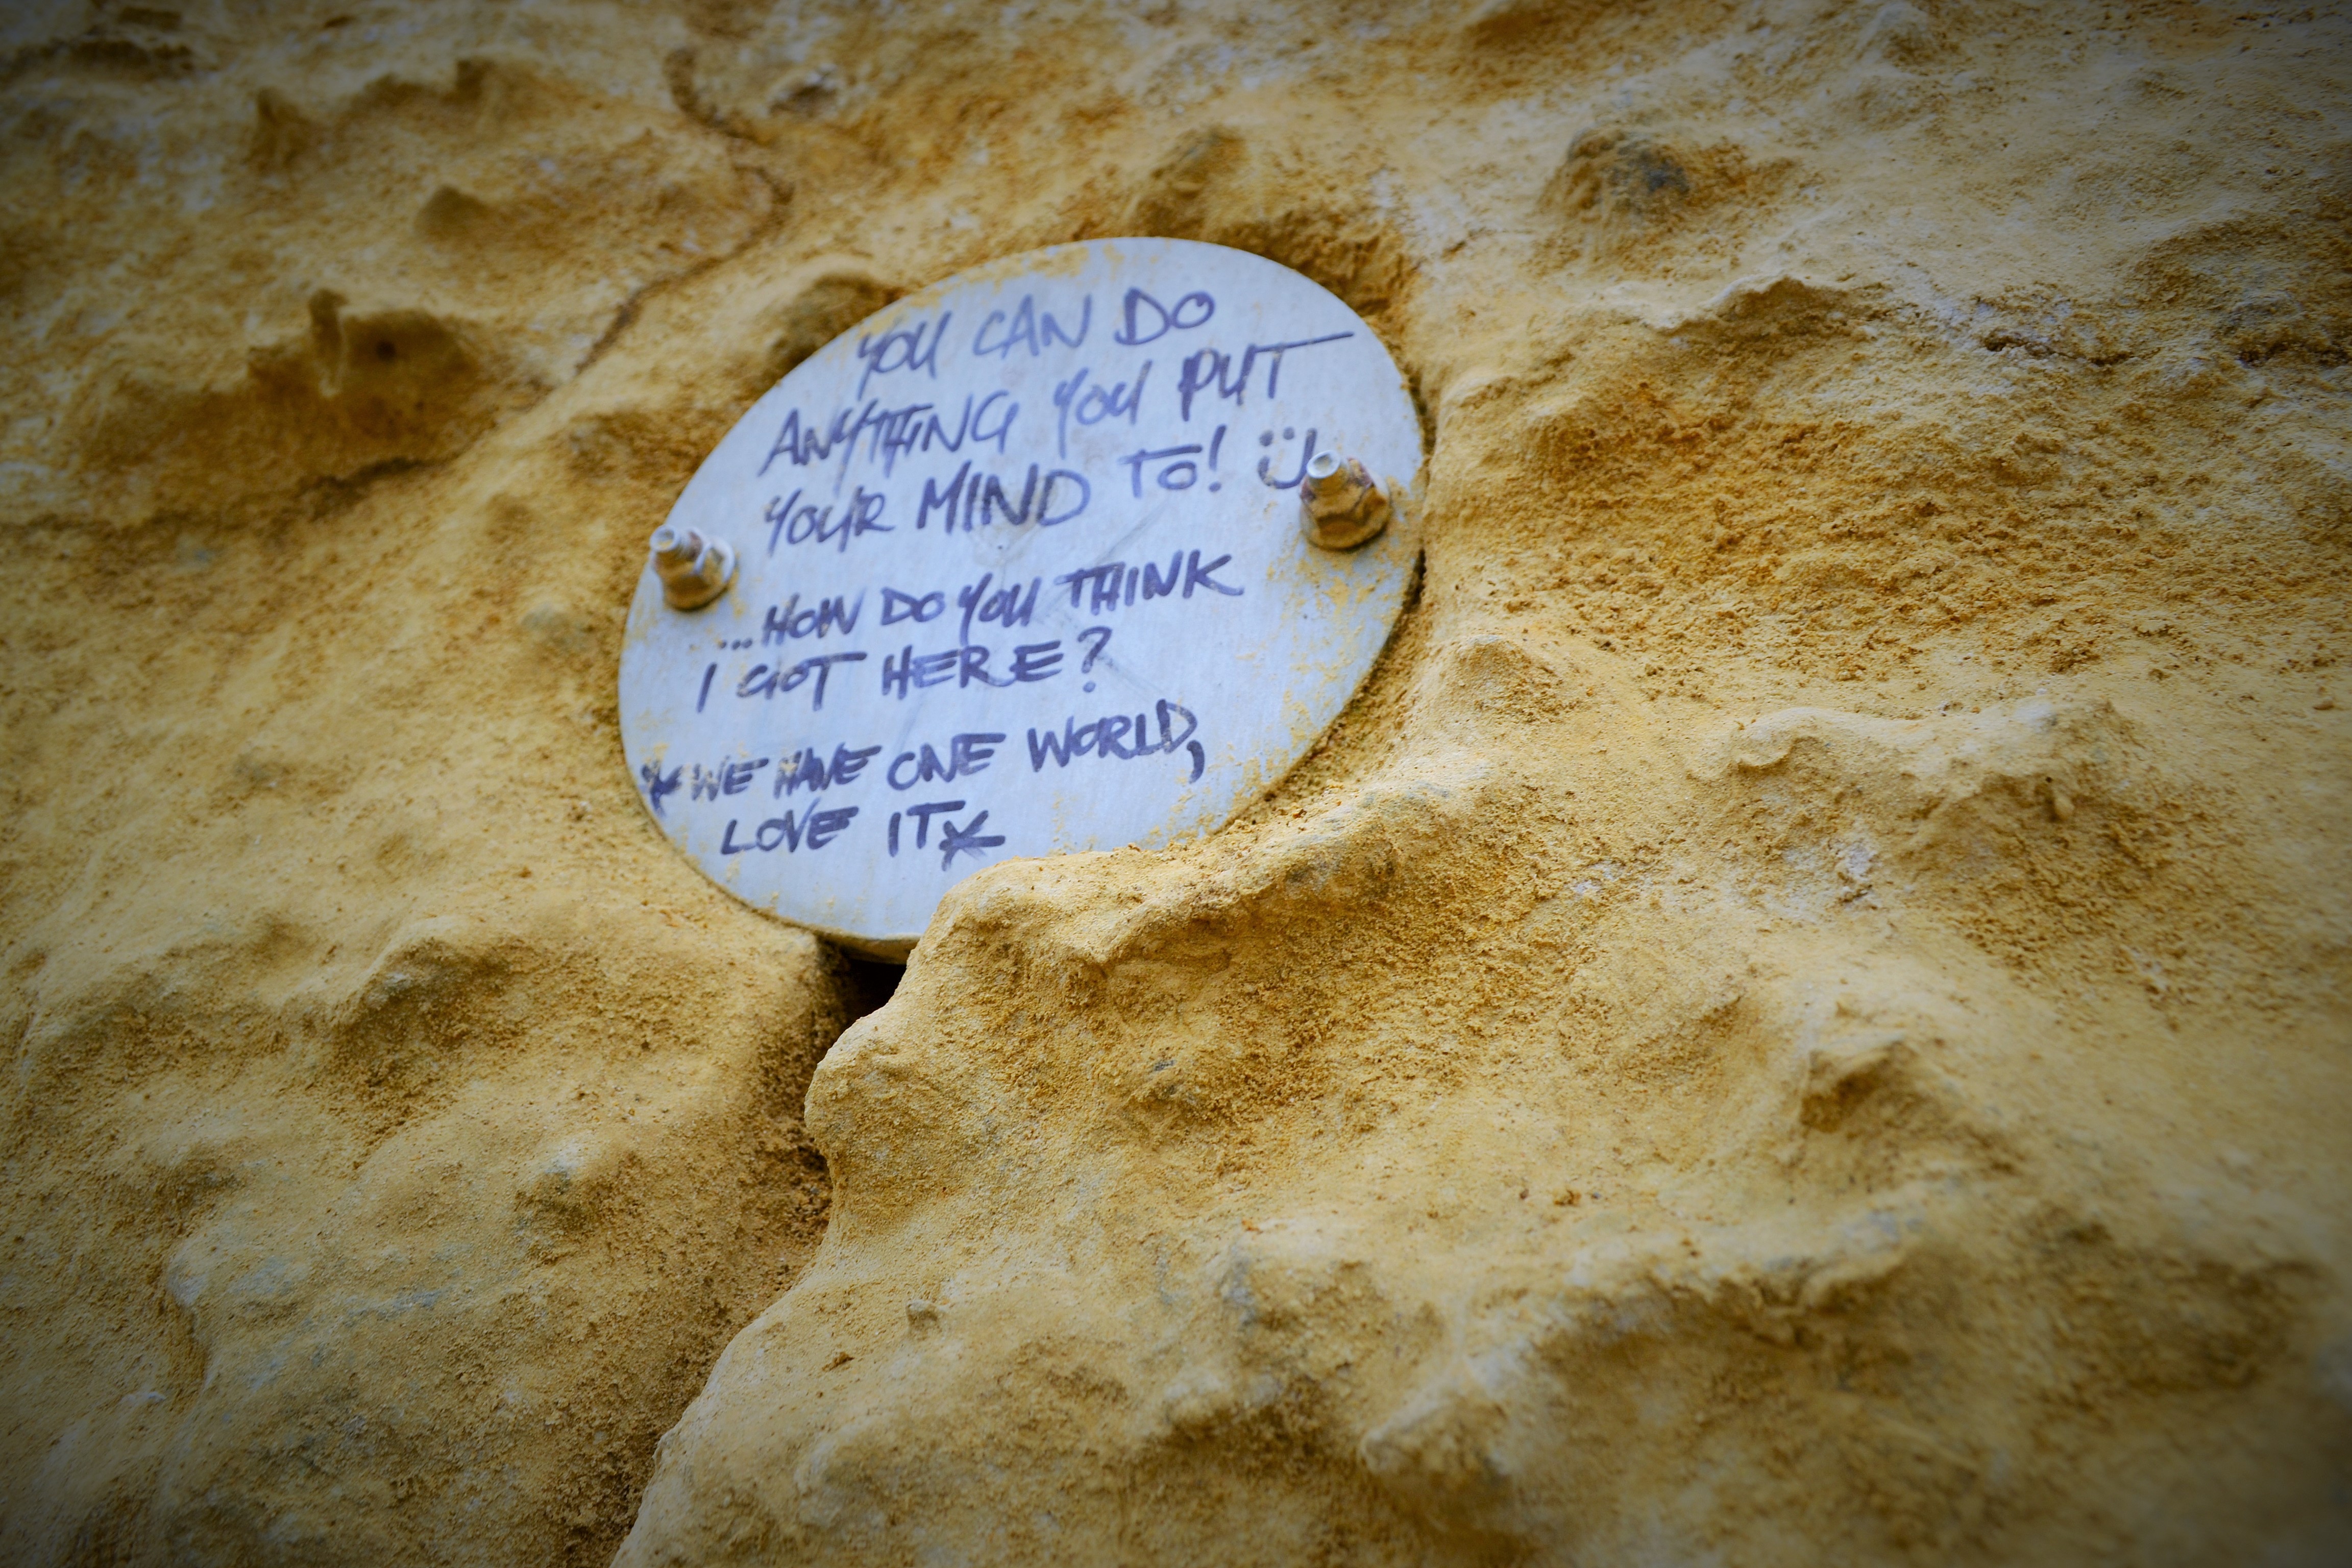 YOU CAN DO
ANYTHING YOU PUT
YOUR MIND TO! Ü
...HOW DO YOU THINK
I GOT HERE?
*WE HAVE ONE WORLD,
LOVE IT*